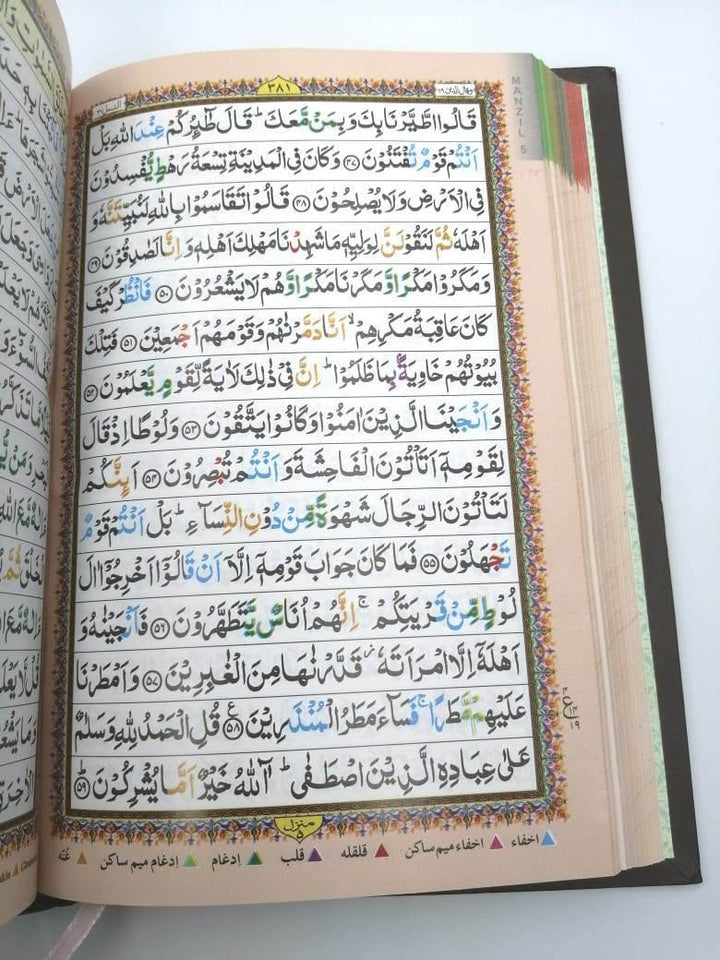 النمل ٢٧
٣٨١
وقال الذين ١٩
MANZIL 5
قَالُوا اطَّيَّرْنَا بِكَ وَبِمَنْ مَّعَكَ ؕ قَالَ طٰٓئِرُكُمْ عِنْدَ اللّٰهِ بَلْ
اَنْتُمْ قَوْمٌ تُفْتَنُوْنَ ﴿۴۷﴾ وَكَانَ فِي الْمَدِيْنَةِ تِسْعَةُ رَهْطٍ يُّفْسِدُوْنَ
فِي الْاَرْضِ وَلَا يُصْلِحُوْنَ ﴿۴۸﴾ قَالُوْا تَقَاسَمُوْا بِاللّٰهِ لَنُبَيِّتَنَّهٗ وَ
اَهْلَهٗ ثُمَّ لَنَقُوْلَنَّ لِوَلِيِّهٖ مَا شَهِدْنَا مَهْلِكَ اَهْلِهٖ وَ اِنَّا لَصٰدِقُوْنَ ﴿۴۹﴾
وَ مَكَرُوْا مَكْرًا وَّ مَكَرْنَا مَكْرًا وَّ هُمْ لَا يَشْعُرُوْنَ ﴿۵۰﴾ فَانْظُرْ كَيْفَ
كَانَ عَاقِبَةُ مَكْرِهِمْ ۙ اَنَّا دَمَّرْنٰهُمْ وَ قَوْمَهُمْ اَجْمَعِيْنَ ﴿۵۱﴾ فَتِلْكَ
بُيُوْتُهُمْ خَاوِيَةًۢ بِمَا ظَلَمُوْا ؕ اِنَّ فِيْ ذٰلِكَ لَاٰيَةً لِّقَوْمٍ يَّعْلَمُوْنَ ﴿۵۲﴾
وَ اَنْجَيْنَا الَّذِيْنَ اٰمَنُوْا وَ كَانُوْا يَتَّقُوْنَ ﴿۵۳﴾ وَ لُوْطًا اِذْ قَالَ
لِقَوْمِهٖۤ اَتَاْتُوْنَ الْفَاحِشَةَ وَ اَنْتُمْ تُبْصِرُوْنَ ﴿۵۴﴾ اَئِنَّكُمْ
لَتَاْتُوْنَ الرِّجَالَ شَهْوَةً مِّنْ دُوْنِ النِّسَآءِ ؕ بَلْ اَنْتُمْ قَوْمٌ
تَجْهَلُوْنَ ﴿۵۵﴾ فَمَا كَانَ جَوَابَ قَوْمِهٖۤ اِلَّاۤ اَنْ قَالُوْۤا اَخْرِجُوْۤا اٰلَ
لُوْطٍ مِّنْ قَرْيَتِكُمْ ۚ اِنَّهُمْ اُنَاسٌ يَّتَطَهَّرُوْنَ ﴿۵۶﴾ فَاَنْجَيْنٰهُ وَ
اَهْلَهٗۤ اِلَّا امْرَاَتَهٗ ؗ قَدَّرْنٰهَا مِنَ الْغٰبِرِيْنَ ﴿۵۷﴾ وَ اَمْطَرْنَا
عَلَيْهِمْ مَّطَرًا ۚ فَسَآءَ مَطَرُ الْمُنْذَرِيْنَ ﴿۵۸﴾ قُلِ الْحَمْدُ لِلّٰهِ وَ سَلٰمٌ
عَلٰى عِبَادِهِ الَّذِيْنَ اصْطَفٰى ؕ آٰللّٰهُ خَيْرٌ اَمَّا يُشْرِكُوْنَ ﴿۵۹﴾
منزل ۵
اخفاء اخفاء میم ساکن قلقله قلب ادغام ادغام میم ساکن غنه